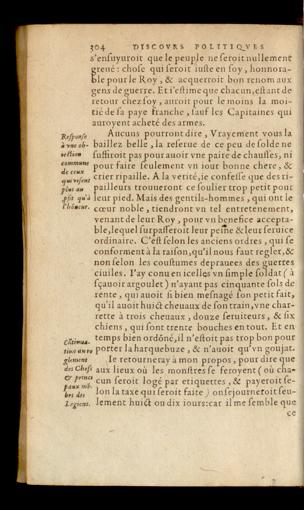 304 DISCOVRS POLITIQVES
s'ensuyuroit que le peuple ne seroit nullement
greué: chose qui seroit iuste en soy, honnora-
ble pour le Roy, & acquerroit bon renom aux
gens de guerre. Et i'estime que chacun, estant de
retour chez soy, auroit pour le moins la moi-
tié de sa paye franche, sauf les Capitaines qui
auroyent acheté des armes.
Response
à vne ob-
iection
commune
de ceux
qui visent
plus au
qu'à
l'hōneur.
Aucuns pourront dire, Vrayement vous la
baillez belle, la reserue de ce peu de solde ne
suffiroit pas pour auoir vne paire de chausses, ni
pour faire seulement vn iour bonne chere, &
crier ripaille. A la verité, ie confesse que des ri-
pailleurs trouueront ce soulier trop petit pour
leur pied. Mais des gentils-hommes, qui ont le
cœur noble, tiendront vn tel entretenement,
venant de leur Roy, pour vn benefice accepta-
ble, lequel surpasseroit leur peine & leur seruice
ordinaire. C'est selon les anciens ordres, qui se
conforment à la raison, qu'il nous faut regler, &
non selon les coustumes deprauees des guerres
ciuiles. I'ay conu en icelles vn simple soldat (à
sçauoir argoulet) n'ayant pas cinquante sols de
rente, qui auoit si bien mesnagé son petit fait,
qu'il auoit huict cheuaux de son train, vne char-
rette à trois cheuaux, douze seruiteurs, & six
chiens, qui sont trente bouches en tout. Et en
temps bien ordōné, il n'estoit pas trop bon pour
porter la harquebuze, & n'auoit qu'vn goujat.
glement
des Chefs
& princi
paux mē-
bres des
Legions.
Ie retourneray à mon propos, pour dire que
aux lieux où les monstres se feroyent (où cha-
cun seroit logé par etiquettes, & payeroit se-
lon la taxe qui seroit faite) on seiourneroit seu-
lement huict ou dix iours: car il me semble que
ce